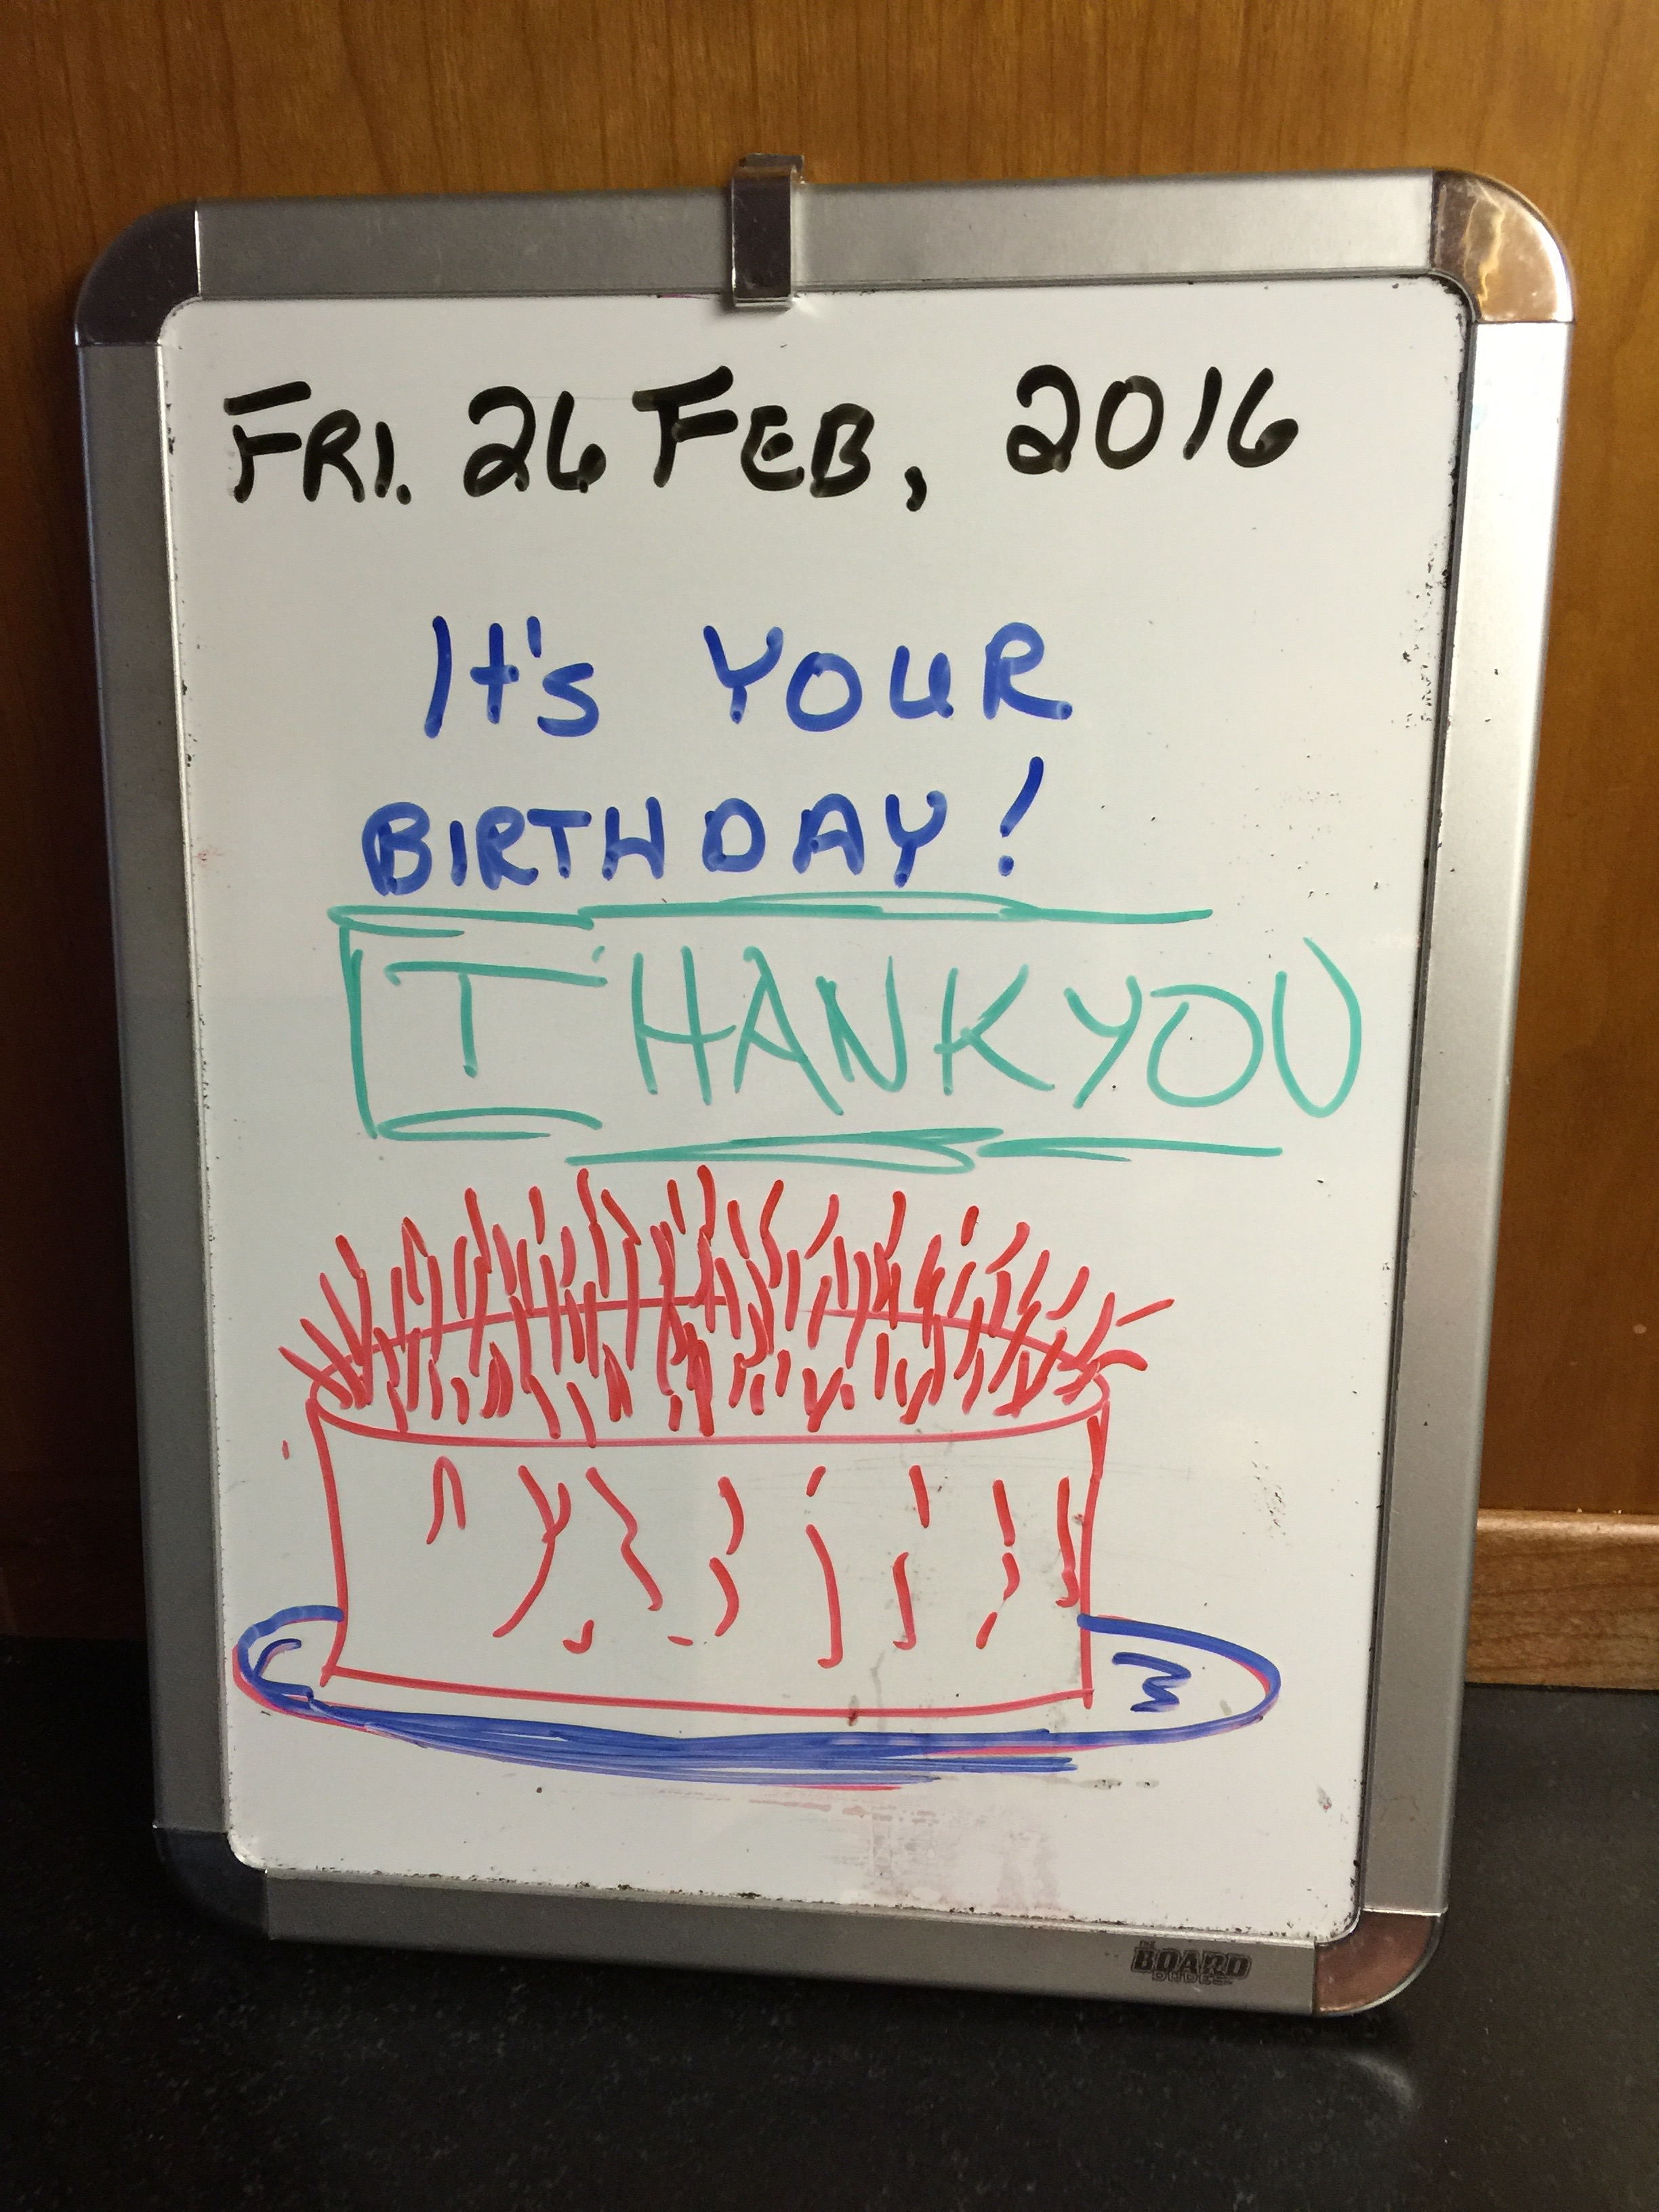 FRI. 26 FEB, 2016
It's YOUR
BIRTHDAY!
THANK YOU
THE
BOARD
DUDES